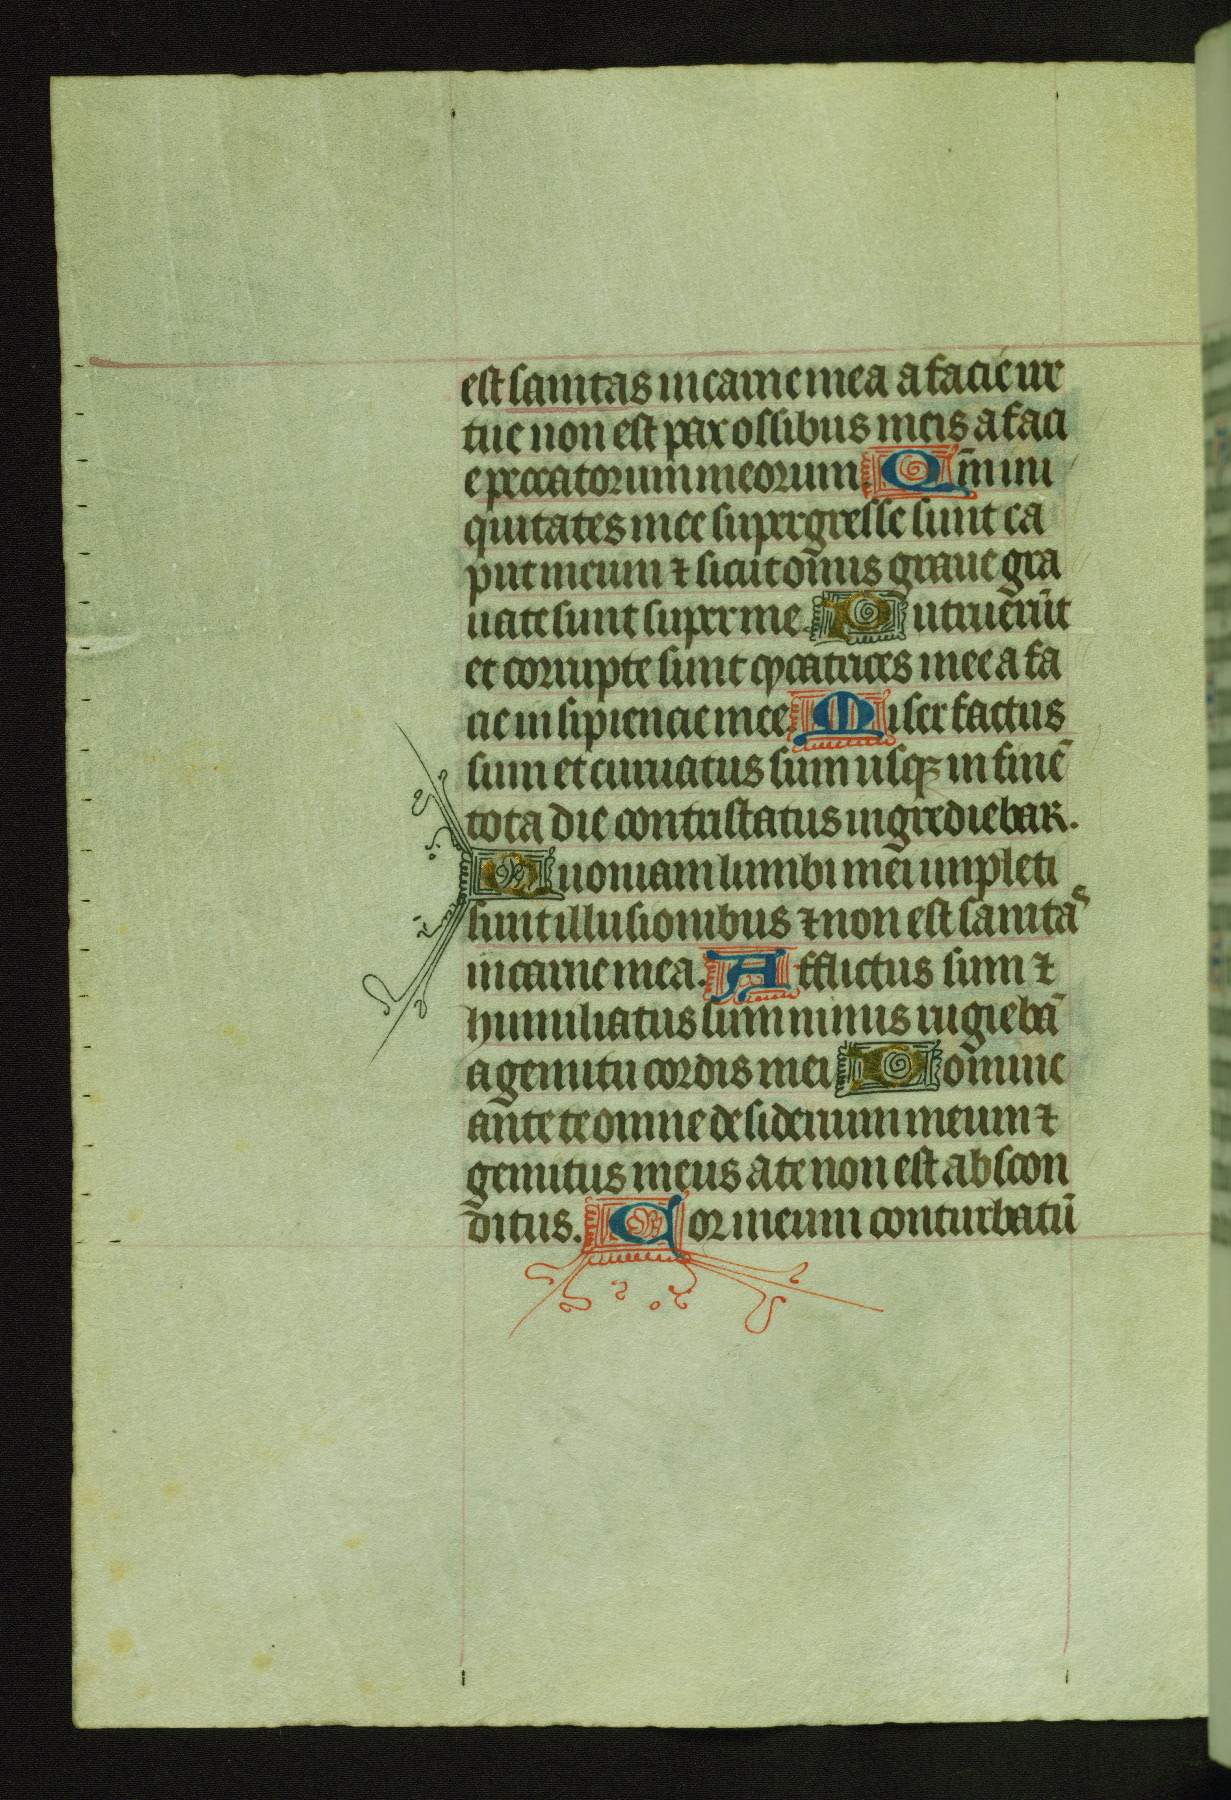 est sanitas in carne mea a facie ire
tue non est pax ossibus meis a faci
e peccatorum meorum. Qm̄ ini
quitates mee supergresse sunt ca
put meum ⁊ sicut on̄us graue gra
uate sunt super me. Putruerūt
et corrupte sunt cycatrices mee a fa
cie insipiencie mee. Miser factus
sum et curuatus sum usqꝫ in finē
tota die contristatus ingrediebar.
Quoniam lumbi mei impleti
sunt illusionibus ⁊ non est sanitas
in carne mea. Afflictus sum ⁊
humiliatus sum nimis rugiebā
a gemitu cordis mei Domine
ante te omne desiderium meum ⁊
gemitus meus a te non est abscon
ditus. Cor meum conturbatū